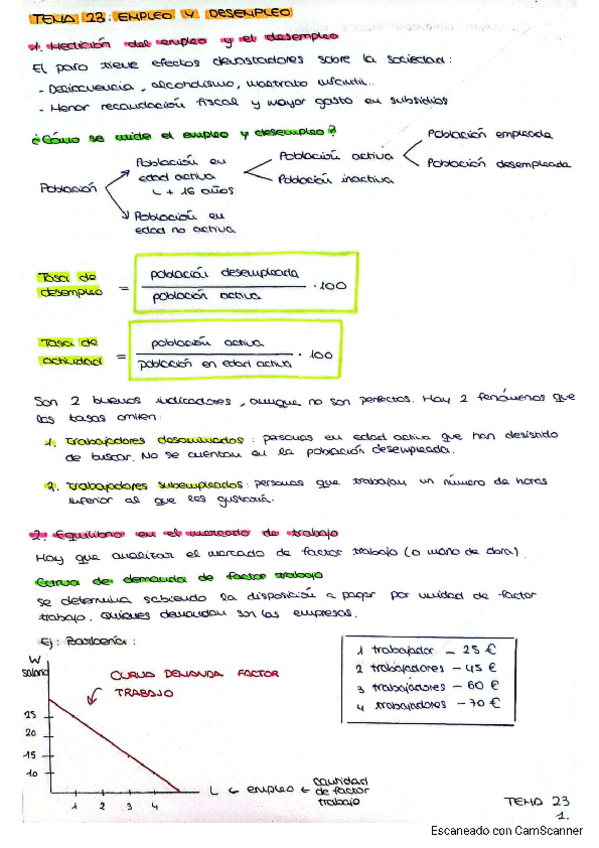 TEMA 23: EMPLEO Y DESEMPLEO
1. Medición del empleo y el desempleo
El paro tiene efectos devastadores sobre la sociedad:
- Delincuencia, alcoholismo, maltrato infantil...
- Menor recaudación fiscal y mayor gasto en subsidios
¿Cómo se mide el empleo y desempleo?
Población
Población en
edad activa
L + 16 años
Población en
edad no activa
Población activa
Población inactiva
Población empleada
Población desempleada
Tasa de
desempleo = población desempleada
población activa · 100
Tasa de
actividad = población activa
población en edad activa · 100
Son 2 buenos indicadores, aunque no son perfectos. Hay 2 fenómenos que
las tasas omiten:
1. Trabajadores desanimados: personas en edad activa que han desistido
de buscar. No se cuentan en la población desempleada.
2. Trabajadores subempleados: personas que trabajan un número de horas
inferior al que les gustaría.
2. Equilibrio en el mercado de trabajo
Hay que analizar el mercado de factor trabajo (o mano de obra).
Curva de demanda de factor trabajo
Se determina sabiendo la disposición a pagar por unidad de factor
trabajo. Quienes demandan son las empresas.
Ej: Barbería:
1 trabajador - 25 €
2 trabajadores - 45 €
3 trabajadores - 60 €
4 trabajadores - 70 €
W
salario
CURVA DEMANDA FACTOR
TRABAJO
25
20
15
10
1 2 3 4
L ← empleo ← cantidad
de factor
trabajo
TEMA 23
1.
Escaneado con CamScanner